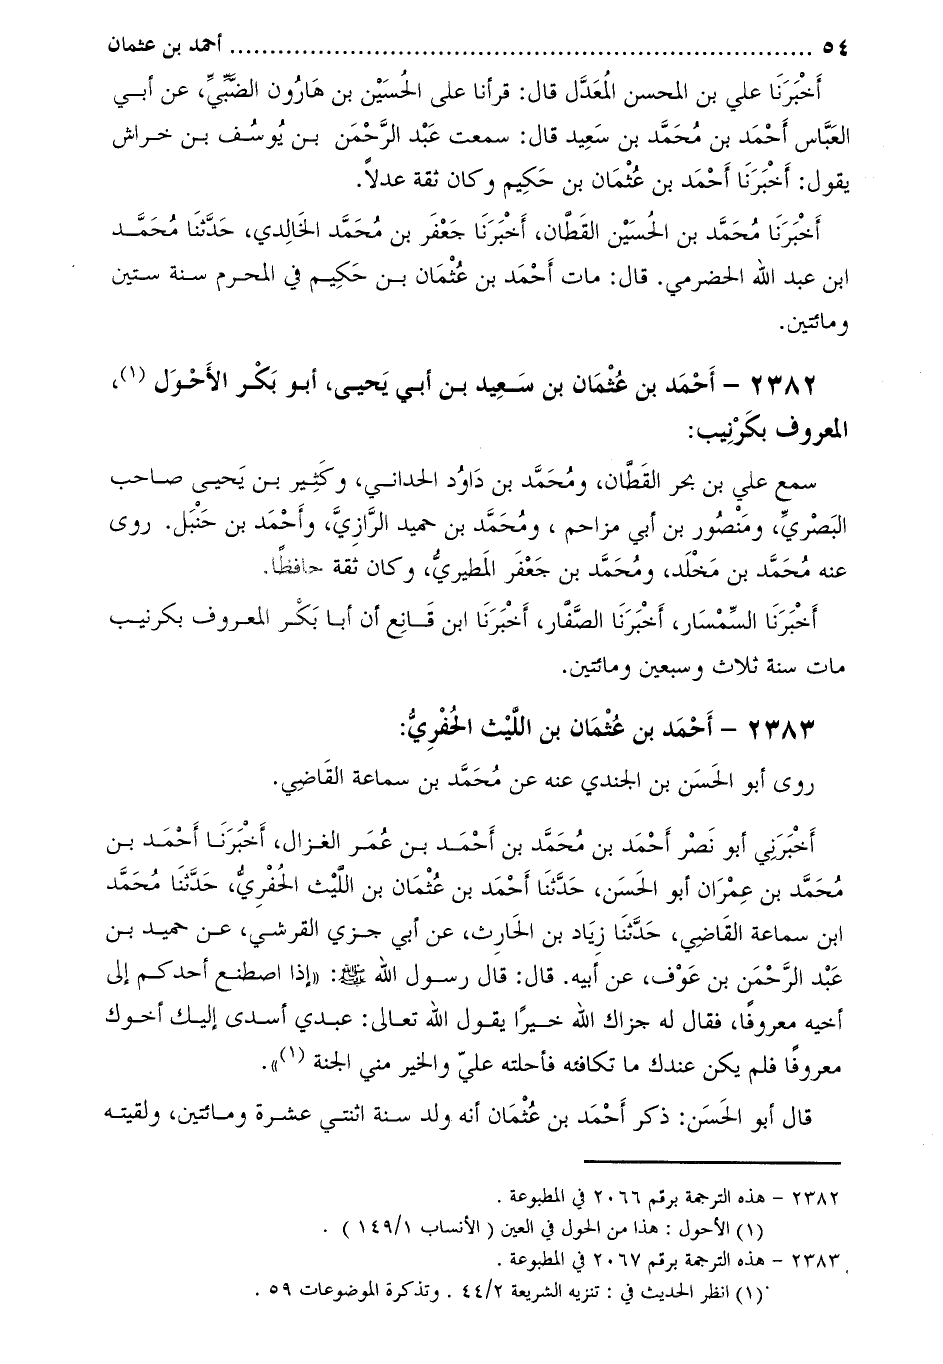 ٥٤ ........................................................................ أحمد بن عثمان
أَخْبَرَنَا علي بن المحسن المُعَدَّل قال: قرأنا على الحُسَيْن بن هَارُون الضَّبِّيِّ، عن أبي
العَبَّاس أَحْمَد بن مُحَمَّد بن سَعِيد قال: سمعت عَبْد الرَّحْمَن بن يُوسُف بن خراش
يقول: أَخْبَرَنَا أَحْمَد بن عُثْمَان بن حَكِيم وكان ثقة عدلاً.
أَخْبَرَنَا مُحَمَّد بن الحُسَيْن القَطَّان، أَخْبَرَنَا جَعْفَر بن مُحَمَّد الخَالِدي، حَدَّثنَا مُحَمَّد
ابن عبد الله الحضرمي. قال: مات أَحْمَد بن عُثْمَان بن حَكِيم في المحرم سنة ستين
ومائتين.
٢٣٨٢ – أَحْمَد بن عُثْمَان بن سَعِيد بن أبي يَحيى، أبو بَكْر الأَحْوَل (١)،
المعروف بكَرْنِيب:
سمع علي بن بحر القَطَّان، ومُحَمَّد بن دَاوُد الحداني، وكَثِير بن يَحيى صاحب
البَصْريِّ، ومَنْصُور بن أبي مزاحم ، ومُحَمَّد بن حميد الرَّازِيَّ، وأَحْمَد بن حَنْبَل. روى
عنه مُحَمَّد بن مَخْلَد، ومُحَمَّد بن جَعْفَر المَطِيريُّ، وكان ثقة حافظًا.
أَخْبَرَنَا السِّمْسَار، أَخْبَرَنَا الصَّفَّار، أَخْبَرَنَا ابن قَانِع أن أبا بَكْر المعروف بكرنيب
مات سنة ثلاث وسبعين ومائتين.
٢٣٨٣ – أَحْمَد بن عُثْمَان بن اللَّيْث الحُفْرِيُّ:
روى أبو الحَسَن بن الجندي عنه عن مُحَمَّد بن سماعة القَاضِي.
أَخْبَرَنِي أبو نَصْر أَحْمَد بن مُحَمَّد بن أَحْمَد بن عُمَر الغزال، أَخْبَرَنَا أَحْمَد بن
مُحَمَّد بن عِمْرَان أبو الحَسَن، حَدَّثَنَا أَحْمَد بن عُثْمَان بن اللَّيْث الحُفْرِيُّ، حَدَّثَنَا مُحَمَّد
ابن سماعة القَاضِي، حَدَّثَنَا زِيَاد بن الحَارِث، عن أبي جزي القرشي، عن حميد بن
عَبْد الرَّحْمَن بن عَوْف، عن أبيه. قال: قال رسول الله ﷺ: «إذا اصطنع أحدكم إلى
أخيه معروفًا، فقال له جزاك الله خيرًا يقول الله تعالى: عبدي أسدى إليك أخوك
معروفًا فلم يكن عندك ما تكافئه فأحلته عليّ والخير مني الجنة (١)».
قال أبو الحَسَن: ذكر أَحْمَد بن عُثْمَان أنه ولد سنة اثنتي عشرة ومائتين، ولقيته
٢٣٨٢ – هذه الترجمة برقم ٢٠٦٦ في المطبوعة .
(١) الأحول : هذا من الحول في العين ( الأنساب ١٤٩/١ ) .
٢٣٨٣ – هذه الترجمة برقم ٢٠٦٧ في المطبوعة .
(١) انظر الحديث في : تنزيه الشريعة ٤٤/٢ . وتذكرة الموضوعات ٥٩ .